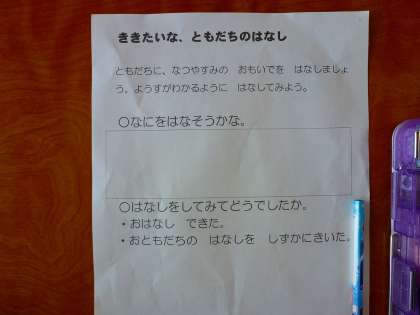 ききたいな、ともだちのはなし
ともだちに、なつやすみの　おもいでを　はなしましょ
う。ようすがわかるように　はなしてみよう。
〇なにをはなそうかな。
〇はなしをしてみてどうでしたか。
・おはなし　できた。
・おともだちの　はなしを　しずかにきいた。